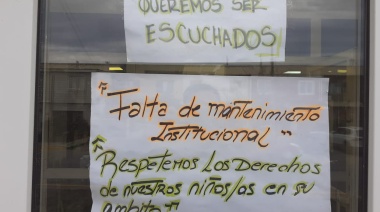 QUEREMOS SER
ESCUCHADOS
"Falta de mantenimiento
Institucional"
"Respetemos Los Derechos
de nuestros niños/as en su
ámbito"